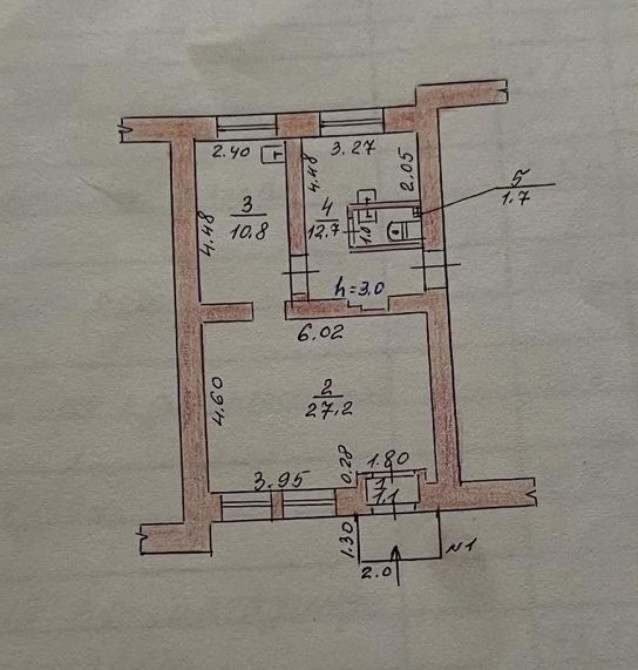 2.40
3.27
4.48
2.05
5
1.7
3
10.8
4
12.7
1.0
4.48
h=3.0
6.02
4.60
2
27,2
3.95
0.28
1.80
1
1.1
1.30
2.0
№1